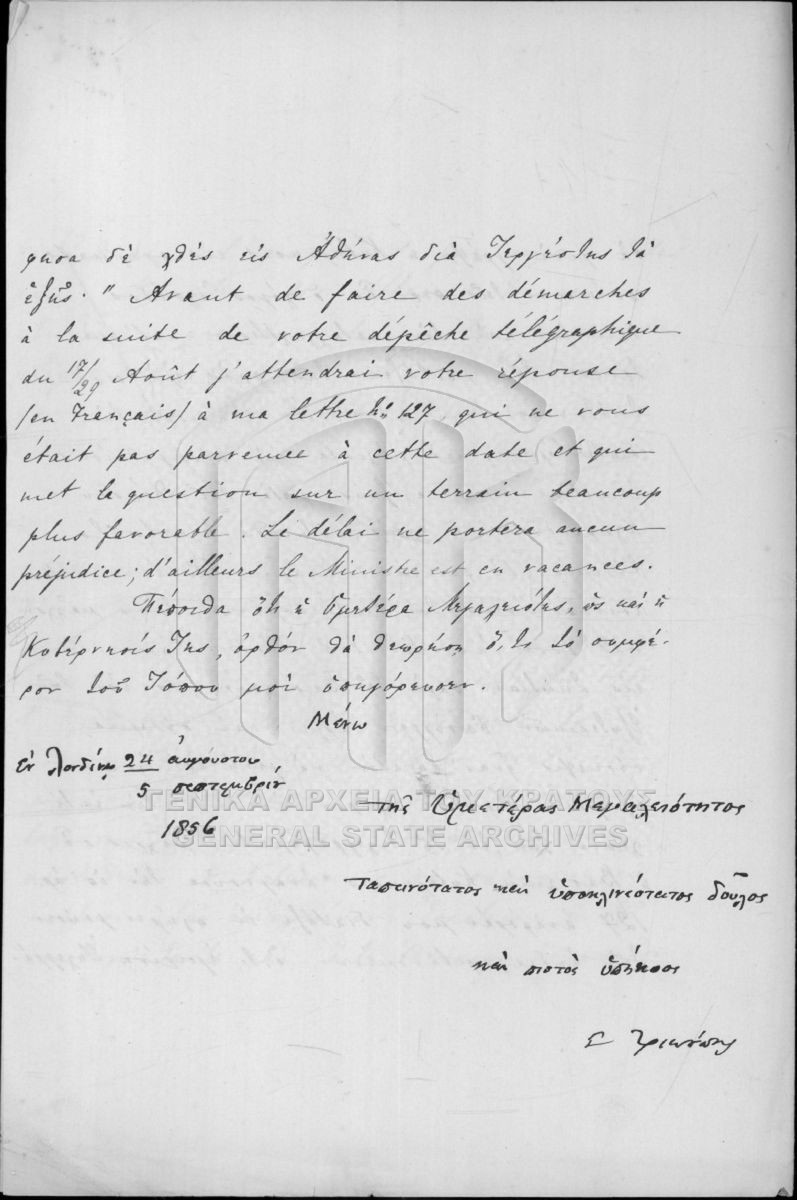 φησα δὲ χθὲς εἰς Ἀθήνας διὰ Τεργέστης τὰ
ἑξῆς· " Avant de faire des démarches
à la suite de votre dépêche télégraphique
du 17/29 Août j'attendrai votre réponse
(en Français) à ma lettre No 127, qui ne vous
était pas parvenue à cette date et qui
met la question sur un terrain beaucoup
plus favorable. Le délai ne portera aucun
préjudice; d'ailleurs le Ministre est en vacances.
Πέποιθα ὅτι ἡ Ὑμετέρα Μεγαλειότης, ὡς καὶ ἡ
Κυβέρνησίς Της, ὀρθὸν θὰ θεωρήσῃ ὅ,τι τὸ συμφέ-
ρον τοῦ Τόπου μοὶ ὑπηγόρευσεν.
Μένω
Ἐν Λονδίνῳ 24 αὐγούστου
5 σεπτεμβρίου
1856
Τῆς Ὑμετέρας Μεγαλειότητος
Ταπεινότατος καὶ ὑποκλινέστατος δοῦλος
καὶ πιστὸς ὑπήκοος
Σ Τρικούπης
ΓΕΝΙΚΑ ΑΡΧΕΙΑ ΤΟΥ ΚΡΑΤΟΥΣ
GENERAL STATE ARCHIVES